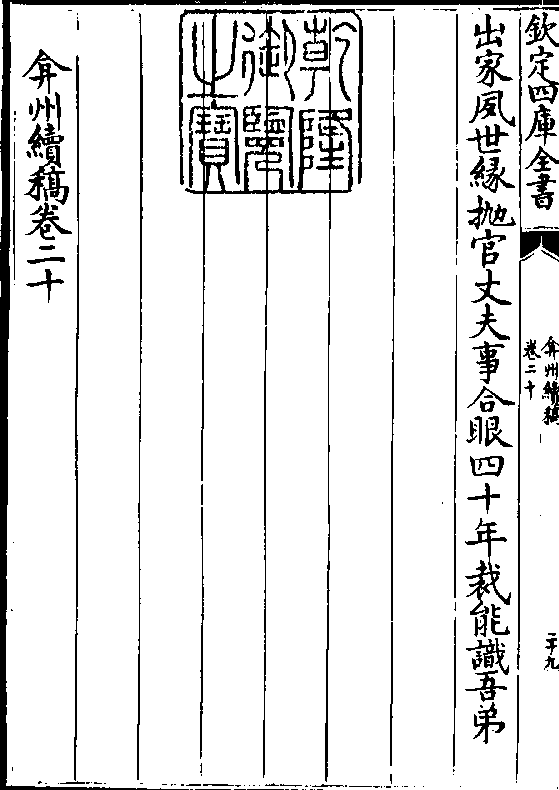 欽定四庫全書
弇州續稿
卷二十
二十九
出家夙世緣抛官丈夫事合眼四十年裁能識吾弟
乾隆御覽之寳
弇州續稿卷二十